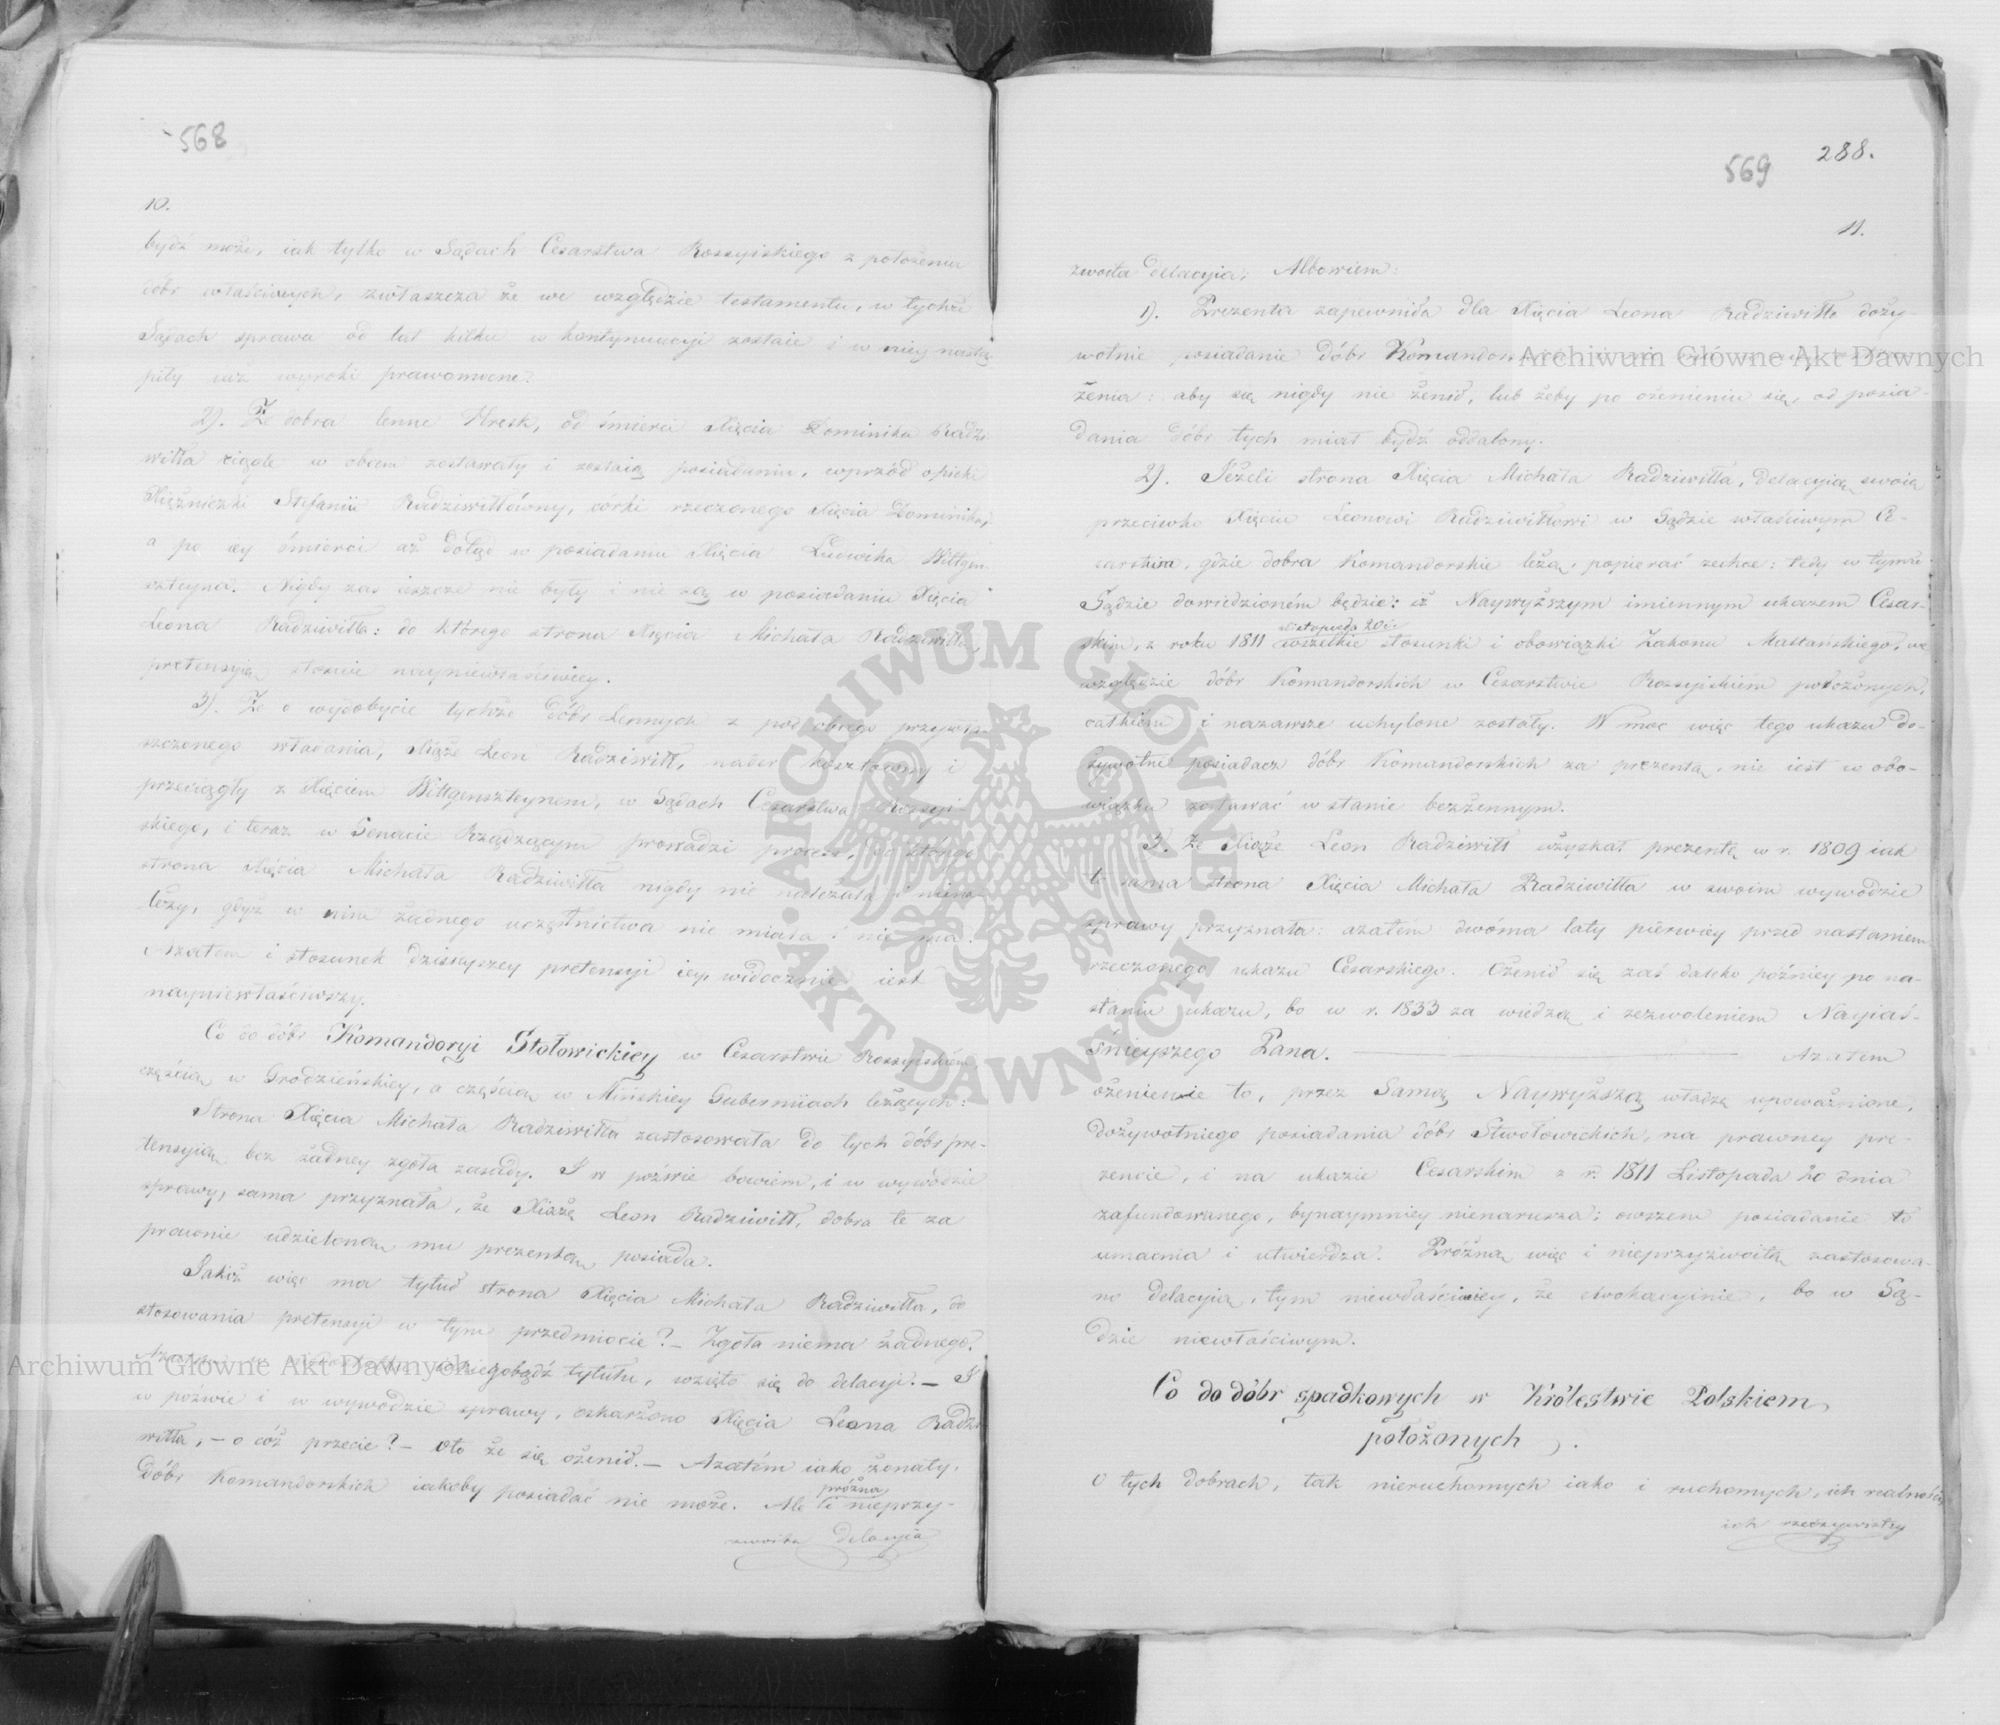 568
10.
bydź może, iak tylko w Sądach Cesarstwa Rossyiskiego z położenia
dóbr właściwych, zwłaszcza że we względzie testamentu, w tychże
Sądach sprawa od lat kilku w kontynuacyi zostaie i w niey nastą
piły iuż wyroki prawomocne.
2). Że dobra lenne Hresk, od śmierci Xięcia Dominika Radzi
wiłła ciągle w obcem zostawały i zostaią posiadaniu, wprzód opieki
Xiężniczki Stefanii Radziwiłłówny, córki rzeczonego Xięcia Dominika,
a po iey śmierci aż dotąd w posiadaniu Xięcia Ludwika Wittgen
szteyna. Nigdy zaś ieszcze nie były i nie są w posiadaniu Xięcia
Leona Radziwiłła: do którego strona Xięcia Michała Radziwiłła,
pretensyią stosuie nayniewłaściwiey.
3). Że o wydobycie tychże dóbr Lennych z pod obcego przywła-
szczonego władania, Xiąże Leon Radziwiłł, nader kosztowny i
przeciągły z Xięciem Wittgenszteynem, w Sądach Cesarstwa Rossyi-
skiego, i teraz w Senacie Rządzącym prowadzi process, do którego
strona Xięcia Michała Radziwiłła nigdy nie należała i niena-
leży, gdyż w nim żadnego uczęstnictwa nie miała i nie ma.
Azatem i stosunek dzisieyszey pretensyi iey, widocznie iest
nayniewłaściwszy.
Co do dóbr Komandoryi Stołowickiey w Cesarstwie Rossyiskiem,
częścią w Grodzieńskiey, a częścią w Mińskiey Guberniiach leżących:
Strona Xięcia Michała Radziwiłła zastosowała do tych dóbr pre-
tensyią bez żadney zgoła zasady. I w pozwie bowiem, i w wywodzie
sprawy, sama przyznała, że Xiąże Leon Radziwiłł, dobra te za
prawnie udzieloną mu prezentą posiada.
Jakiż więc ma tytuł strona Xięcia Michała Radziwiłła, do
stosowania pretensyi w tym przedmiocie? – Zgoła niema żadnego.
Azatem w iakiegobądź tytułu, wzięto się do delacyi. – I
w pozwie i w wywodzie sprawy, oskarżono Xięcia Leona Radzi
wiłła, – o cóż przecie? – oto że się ożenił. – Azatém iako żonaty,
dóbr Komandorskich iakoby posiadać nie może. Ale ta nieprzy-
próżna
zwoita delacyia
569
288.
11.
zwoita delacyia; Albowiem:
1). Prezenta zapewniła dla Xięcia Leona Radziwiłła doży-
wotnie posiadanie dóbr Komandorskich
żenia: aby się nigdy nie żenił, lub żeby po ożenieniu się, od posia-
dania dóbr tych miał bydź oddalony.
2). Jeżeli strona Xięcia Michała Radziwiłła, delacyią swoią
przeciwko Xięciu Leonowi Radziwiłłowi w Sądzie właściwym Ce-
sarstwa, gdzie dobra Komandorskie leżą, popierać zechce: tedy w tymże
Sądzie dowiedzioném będzie: iż Naywyższym imiennym ukazem Cesar-
listopada 20 d.
skim, z roku 1811 wszelkie stosunki i obowiązki Zakonu Maltańskiego, we
względzie dóbr Komandorskich w Cesarstwie Rossyiskiém położonych,
całkiém i nazawsze uchylone zostały. W moc więc tego ukazu do-
żywotni posiadacz dóbr Komandorskich za prezentą, nie iest w obo-
wiązku zostawać w stanie bezżennym.
3. Że Xiąże Leon Radziwiłł uzyskał prezentę w r. 1809 iak
to sama strona Xięcia Michała Radziwiłła w swoim wywodzie
sprawy przyznała: azatém dwóma laty pierwiey przed nastaniem
rzeczonego ukazu Cesarskiego. Ożenił się zaś daleko późniey po na-
staniu ukazu, bo w r. 1833 za wiedzą i zezwoleniem Nayiaś-
śnieyszego Pana. — Azatem
ożenienie to, przez Samą Naywyższą władzę upoważnione,
dożywotniego posiadania dóbr Stwołowickich, na prawney pre-
zencie, i na ukazie Cesarskim z r. 1811 Listopada 20 dnia
zafundowanego, bynaymniey nienarusza; owszem posiadanie to
umacnia i utwierdza. Próżną więc i nieprzyzwoitą zastosowa-
no delacyią, tym niewłaściwiey, że ewokacyinie, bo w Są-
dzie niewłaściwym.
Co do dóbr spadkowych w Królestwie Polskiem
położonych.
O tych dobrach, tak nieruchomych iako i ruchomych, ich realności,
ich rzeczywistey
Archiwum Główne Akt Dawnych
Archiwum Główne Akt Dawnych
ARCHIWUM GŁÓWNE · AKT DAWNYCH ·